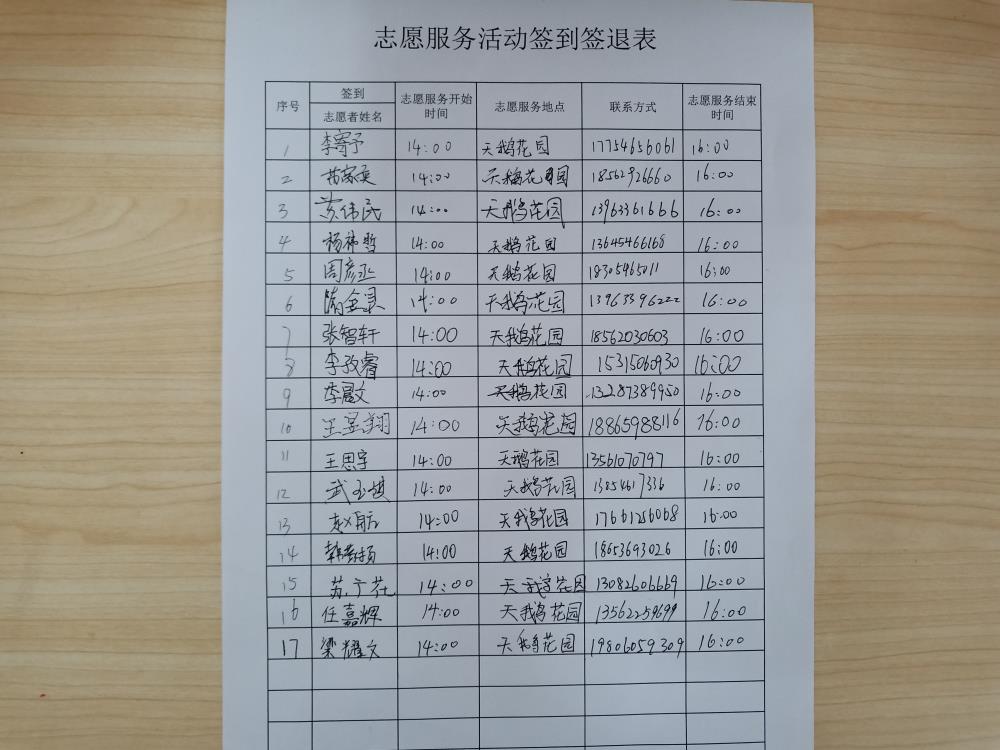 志愿服务活动签到签退表
序号 签到 志愿者姓名 志愿服务开始时间 志愿服务地点 联系方式 志愿服务结束时间
1 李寄予 14:00 天鹅花园 17754656061 16:00
2 14:00 天鹅花园 18562926660 16:00
3 苏伟民 14:00 天鹅花园 13963361666 16:00
4 14:00 天鹅花园 13645466168 16:00
5 周彦丞 14:00 天鹅花园 18305465011 16:00
6 14:00 天鹅花园 13963396222 16:00
7 张智轩 14:00 天鹅花园 18562030603 16:00
8 李孜睿 14:00 天鹅花园 15315060930 16:00
9 14:00 天鹅花园 13287389950 16:00
10 王昱翔 14:00 天鹅花园 18865988116 16:00
11 王思宇 14:00 天鹅花园 13561070797 16:00
12 14:00 天鹅花园 16:00
13 赵航 14:00 天鹅花园 17661256068 16:00
14 14:00 天鹅花园 18653693026 16:00
15 14:00 天鹅花园 13082606669 16:00
16 任嘉辉 14:00 天鹅花园 13562259699 16:00
17 梁耀文 14:00 天鹅花园 19806059309 16:00